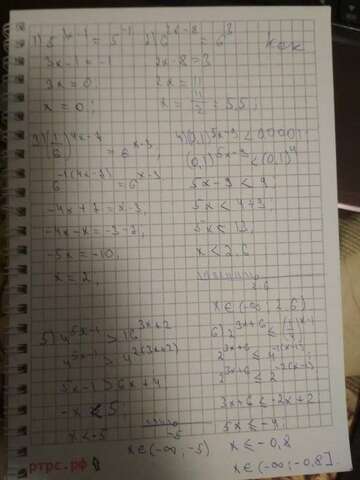 1) 5^{3x-1} = 5^{-1}
3x-1 = -1
3x = 0
x = 0;
2) 6^{2x-8} = 6^{3}
2x-8=3
2x = 11
x = 11/2 = 5,5;
3) (1/6)^{4x-7} = 6^{x-3}
6^{-1(4x-7)} = 6^{x-3}
-4x+7 = x-3;
-4x-x = -3-7;
-5x = -10;
x = 2;
4) (0,1)^{5x-9} < 0,0001
(0,1)^{5x-9} < (0,1)^{4}
5x < 13;
x < 2,6
2,6
x∈(-∞; 2,6)
5) 4^{5x-1} > 16^{3x+2}
4^{5x-1} > 4^{2(3x+2)}
5x-1 > 6x+4
-x < 5;
x < -5
-5
x∈(-∞; -5)
2^{3x+6} ≤ 2^{-2(x-1)}
3x+6 ≤ -2x+2
5x ≤ -4;
x ≤ -0,8
x∈(-∞; -0,8].
ртрс.рф